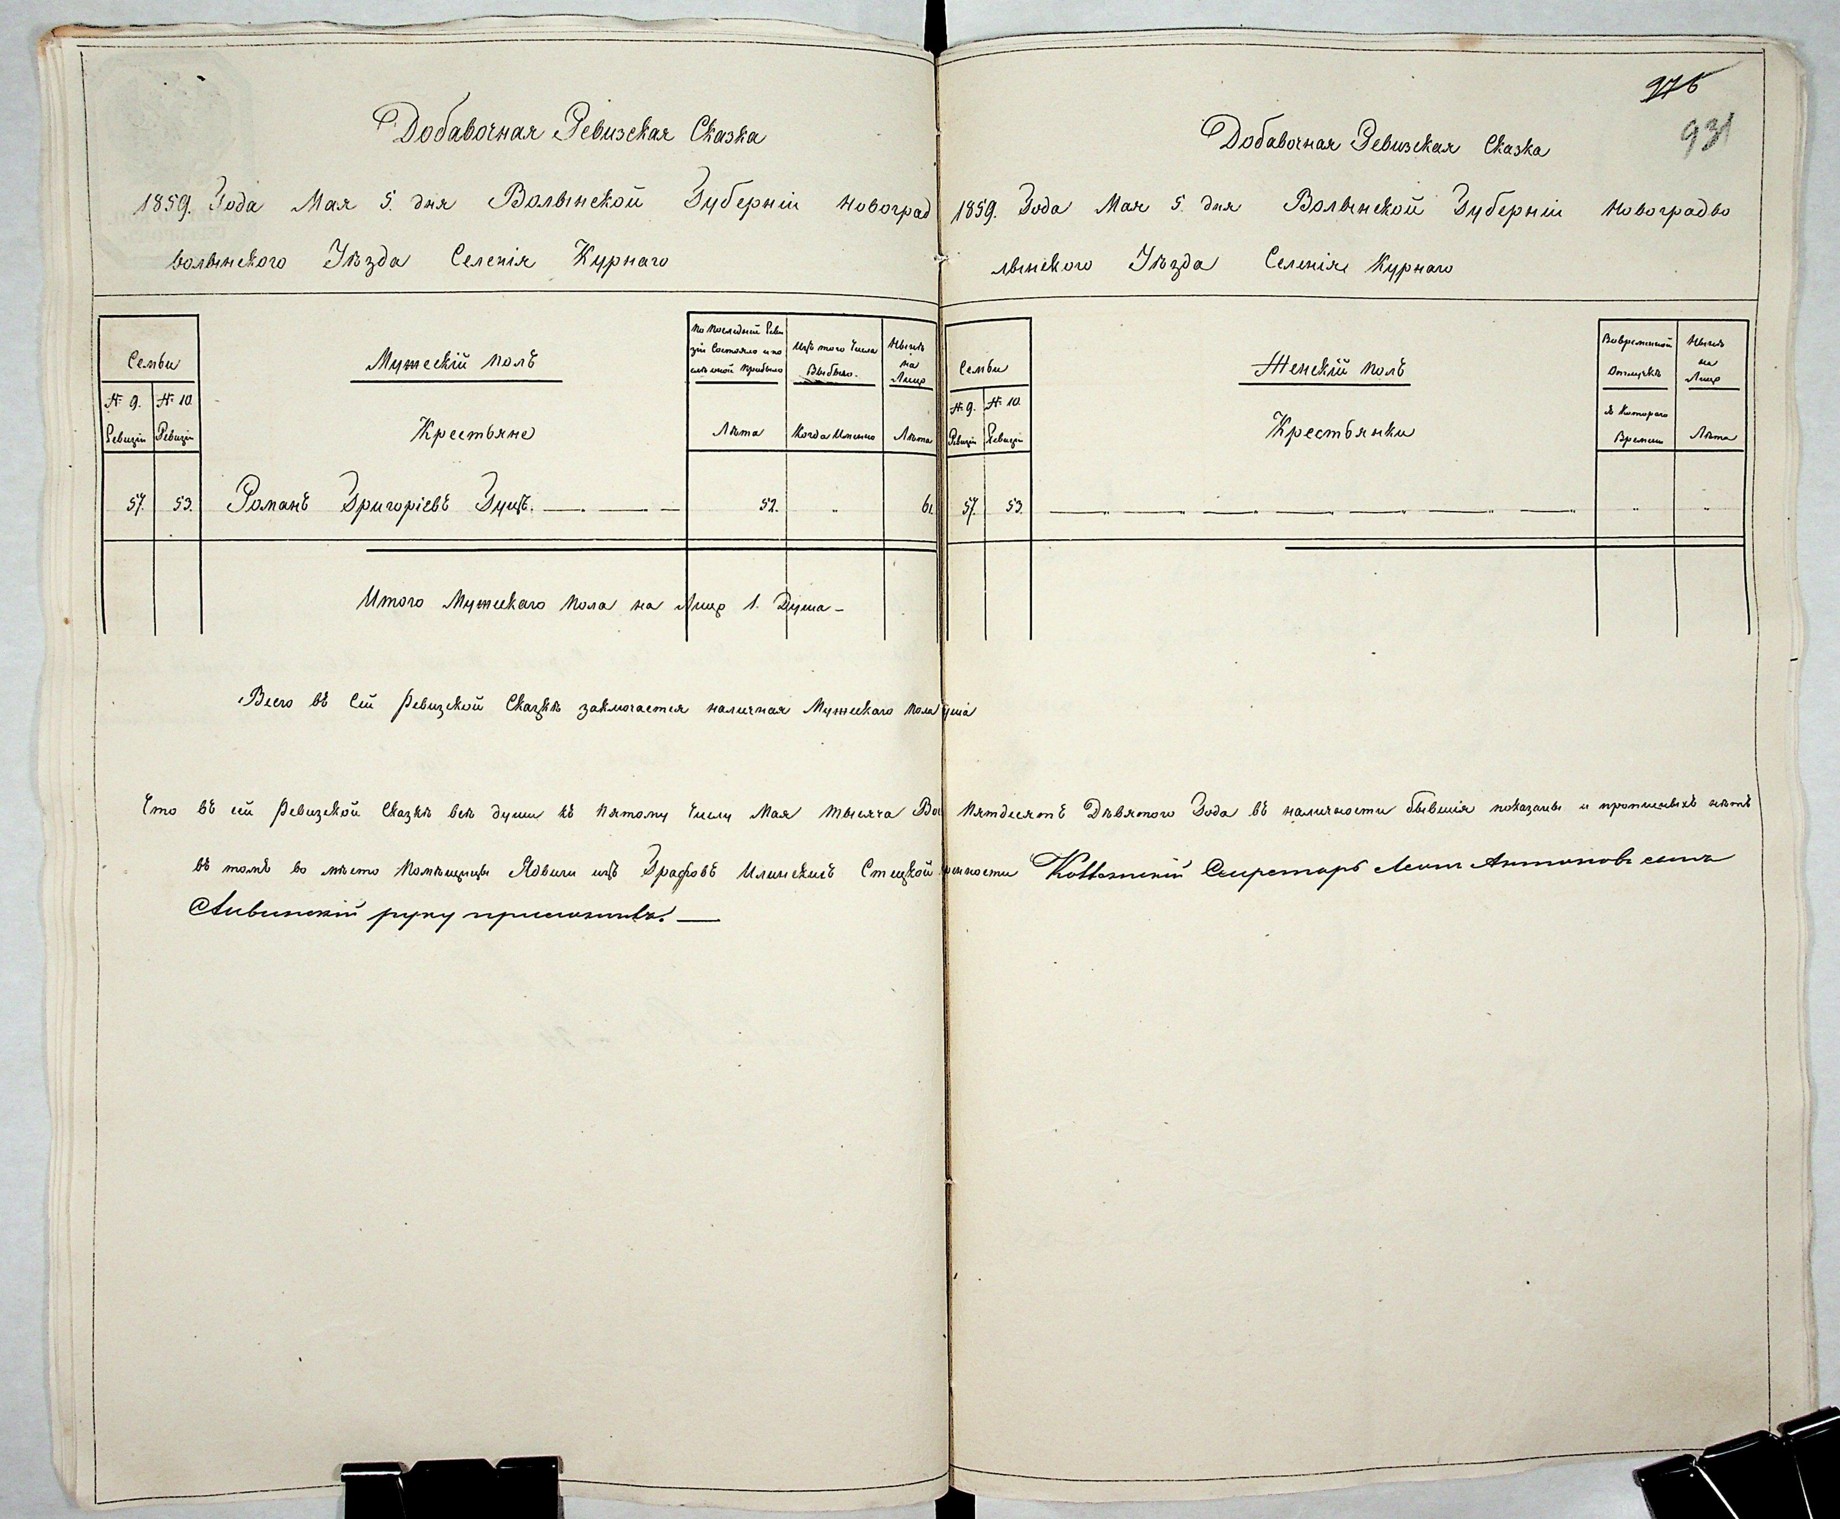 Добавочная Ревизская Сказка
1859. Года Мая 5. дня Волынской Губерніи Новоград
волынского Уѣзда Селенія Курнаго
Семьи
№ 9. Ревизіи
№ 10 Ревизіи
Мужескій полъ
Крестьяне
По последней Реви
зіи Состояло и по
слѣ оной прибыло
Лѣта
Изъ того Числа
Выбыло.
Когда Именно
Нынѣ
на
Лицо
Лѣта
57. 53. Романъ Григоріевъ Гуцъ. 52. „ 61.
Итого Мужскаго пола на Лицо 1. Душа
Всего въ Сей Ревизской Сказкѣ заключается наличная Мужескаго пола
Что въ сей Ревизской Сказкѣ всѣ души къ Пятому Числу Мая тысяча
въ томъ во мѣсто Помѣщицы Ядвиги изъ Графовъ Илинскихъ Стецкой
руку приложилъ.
976
931
Добавочная Ревизская Сказка
1859. Года Мая 5. дня Волынской Губерніи Новоградво
лынского Уѣзда Селенія Курнаго
Семьи
№ 9. Ревизіи
№ 10 Ревизіи
Женскій полъ
Крестьянки
Вовременной
Отлучкѣ
съ Котораго
Времени
Нынѣ
на
Лицо
Лѣта
57. 53. „ „
Пятдесятъ Дѣвятого Года въ наличности бывшія показаны и прописныхъ нѣтъ
Секретарь Антоновъ сынъ